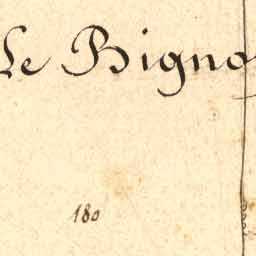 Le Bigno
180